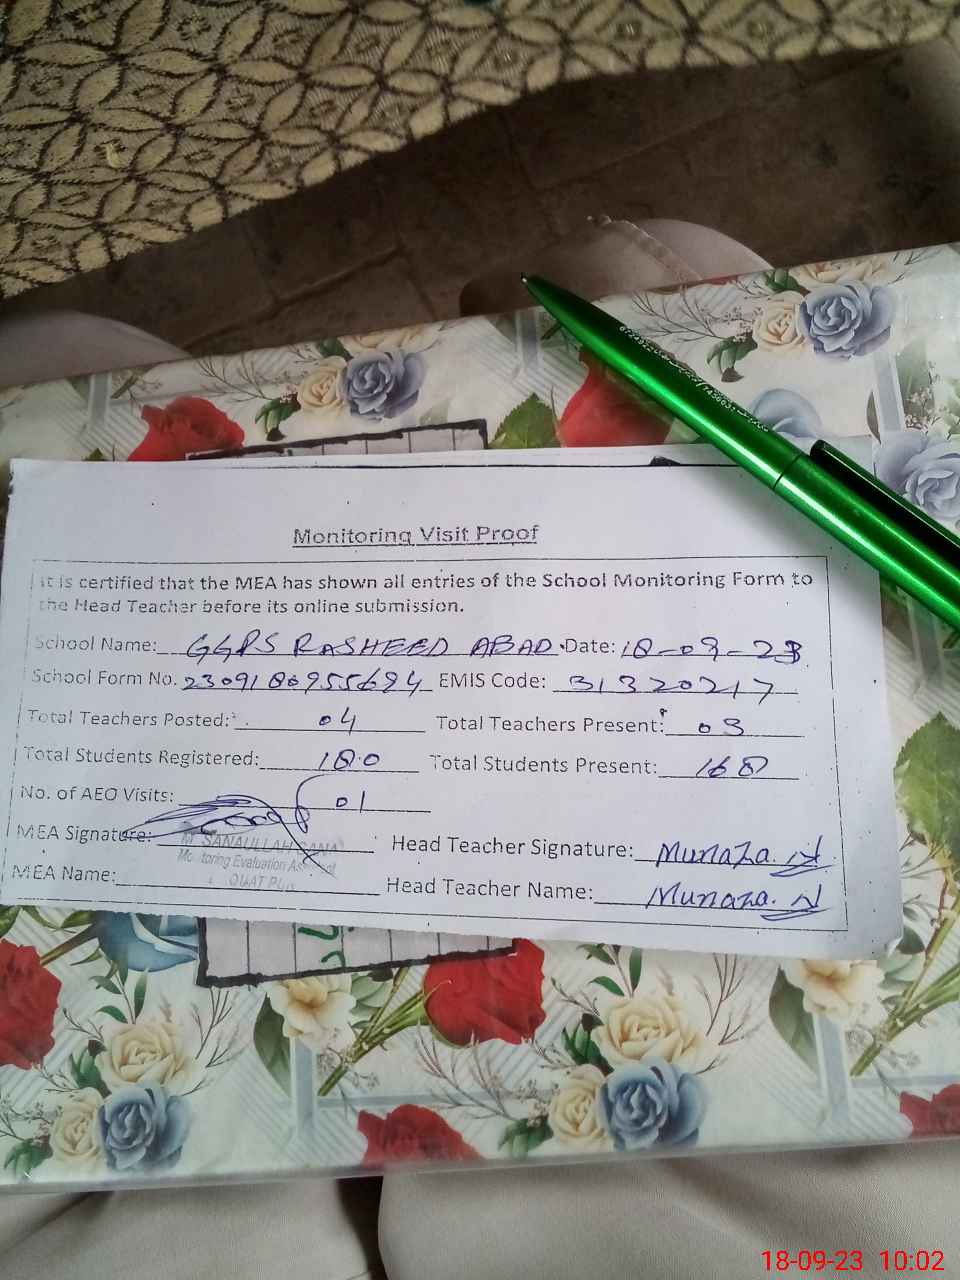 Monitoring Visit Proof
It is certified that the MEA has shown all entries of the School Monitoring Form to
the Head Teacher before its online submission.
School Name: GGPS RASHEED ABAD. Date: 18-09-23
School Form No. 2309180955694 EMIS Code: 31320217
Total Teachers Posted: 04 Total Teachers Present: 03
Total Students Registered: 180 Total Students Present: 168
No. of AEO Visits: 01
MEA Signature: Head Teacher Signature: Munaza. N
Mr SANAULLAH SANA
Monitoring Evaluation Assistant
MEA Name: Head Teacher Name: Munaza. N
18-09-23 10:02